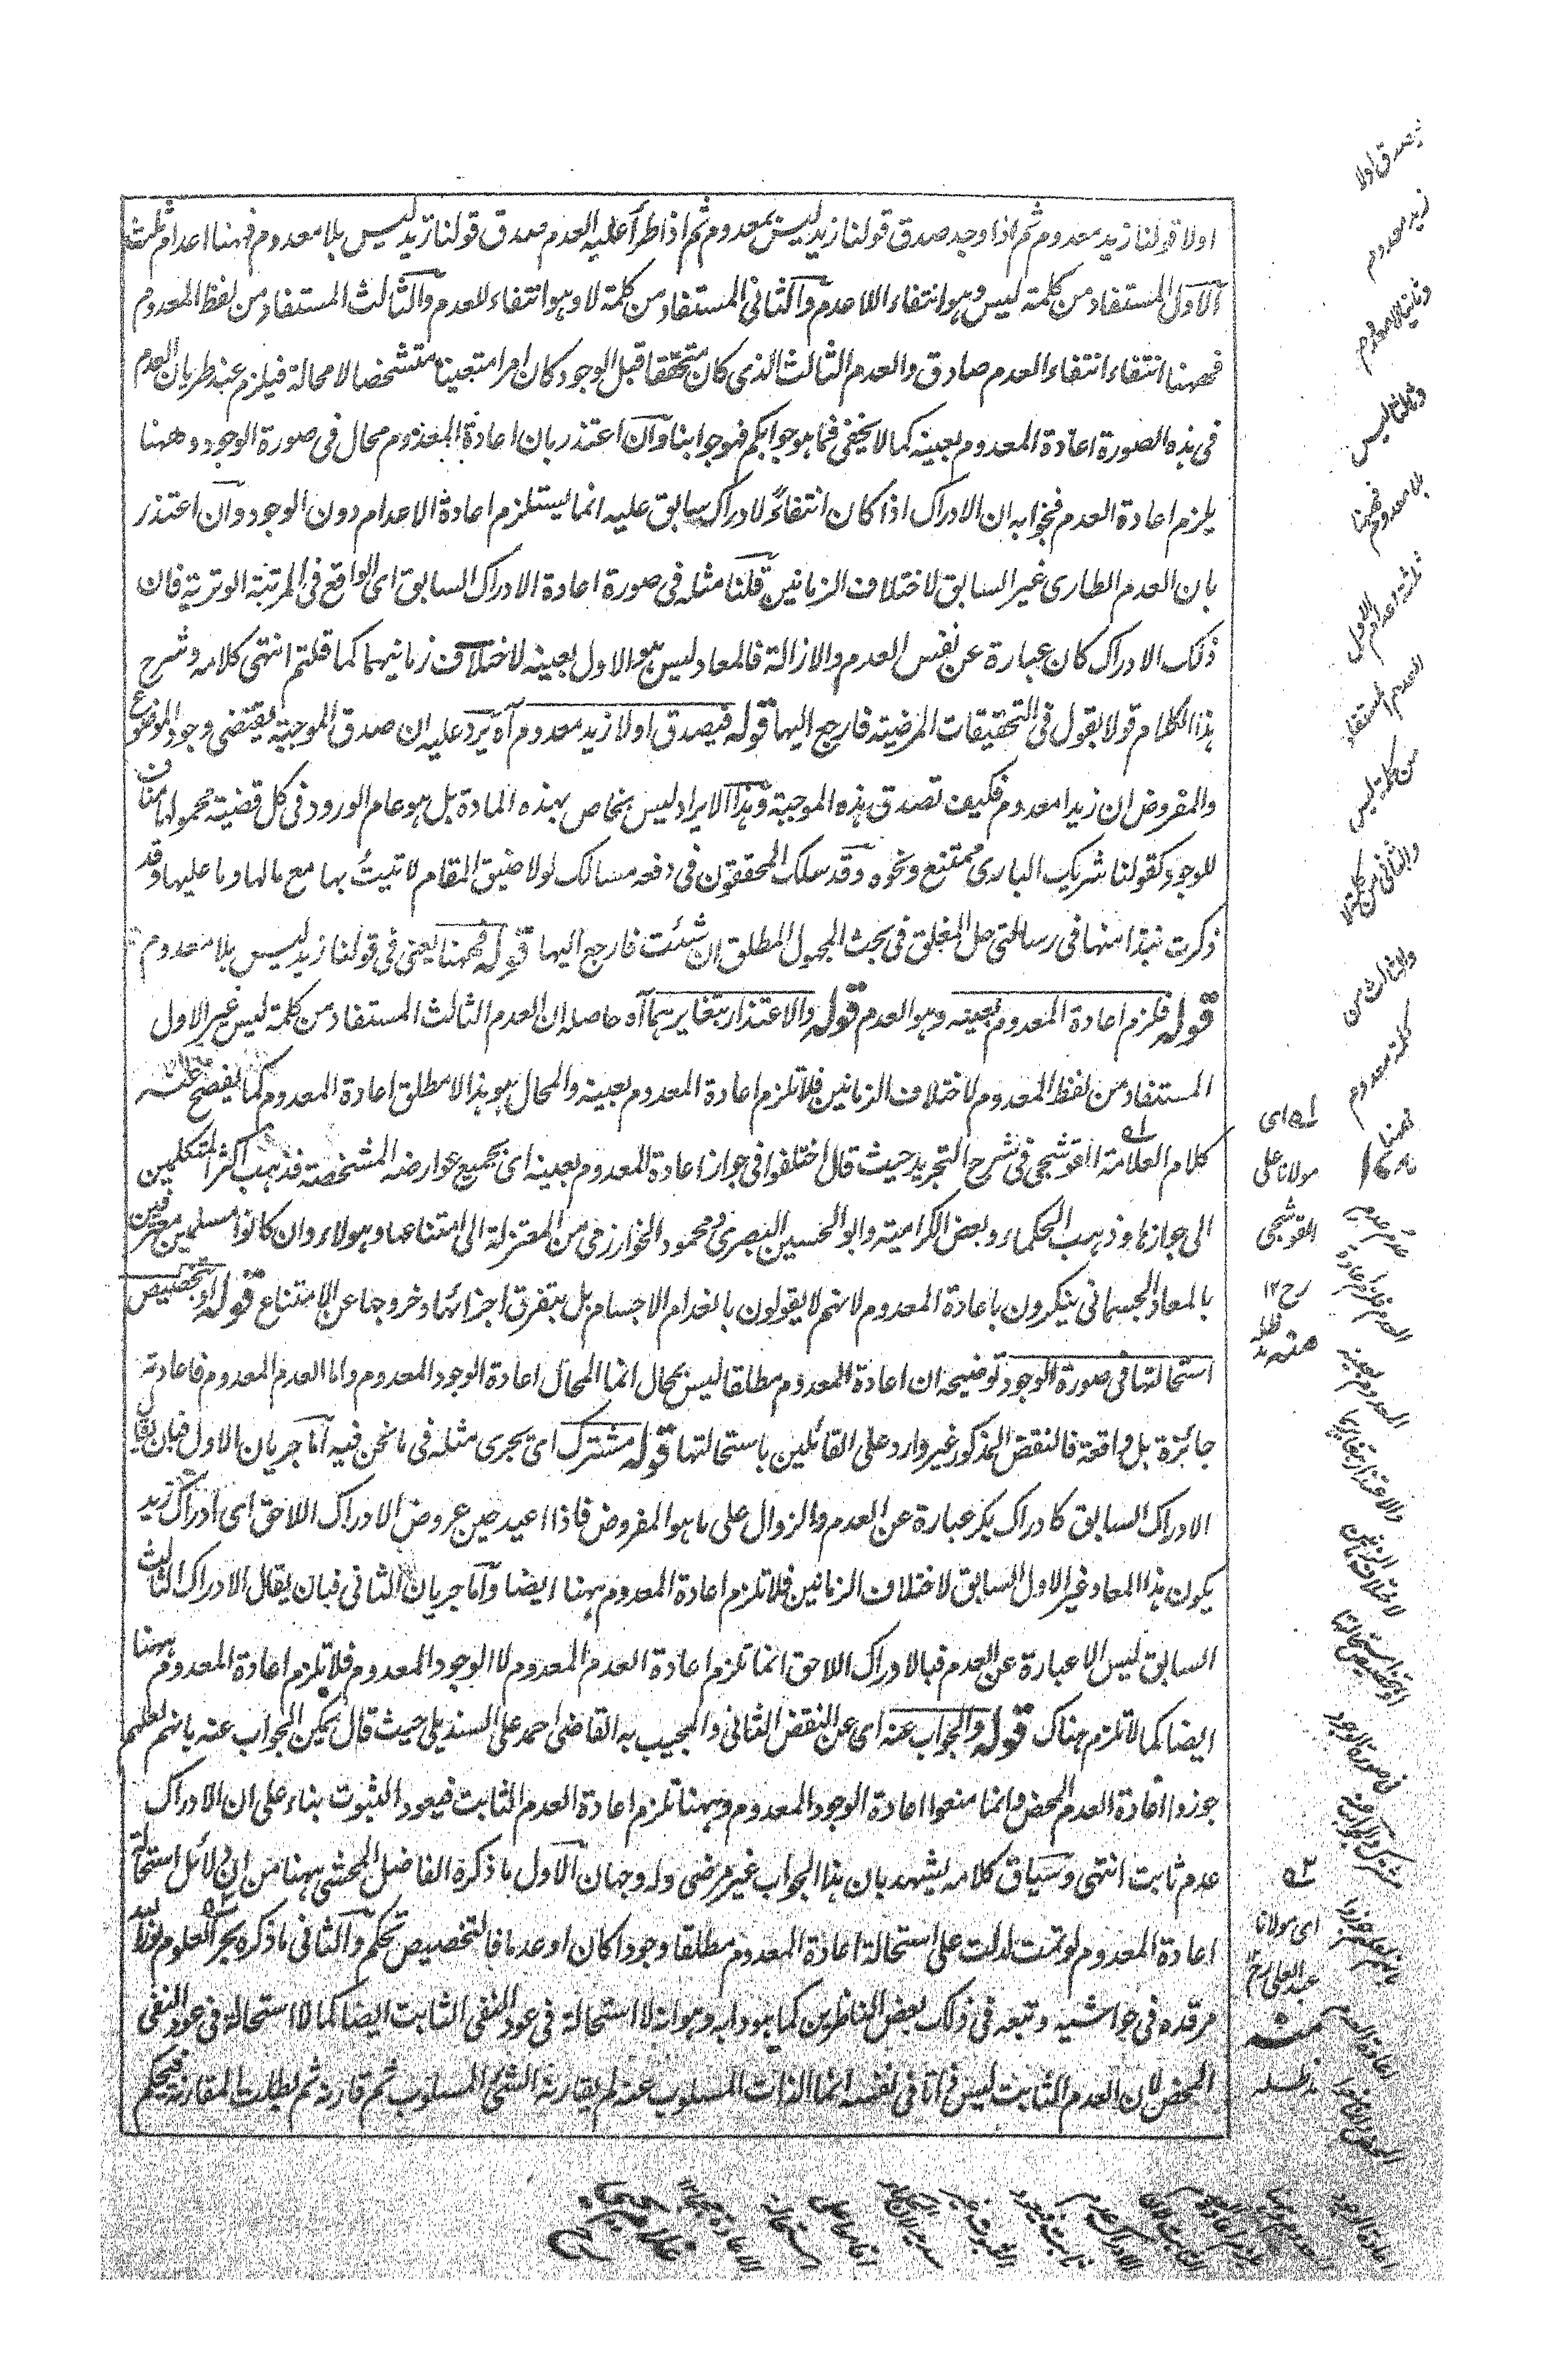 اولا قولنا زيد معدوم ثم اذا وجد صدق قولنا زيد ليس بمعدوم ثم اذا طرأ عليه العدم صدق قولنا زيد ليس بلا معدوم فههنا اعدام ثلثة
الاول المستفاد من كلمة ليس وهو انتفاء اللاعدم والثانى المستفاد من كلمة لا وهو انتفاء لاعدم والثالث المستفاد من لفظ المعدوم
فههنا انتفاء انتفاء العدم صادق والعدم الثالث الذى كان متحققا قبل الوجود كان امرا متعينا متشخصا لا محالة فيلزم عند طريان العدم
فى هذه الصورة اعادة المعدوم بعينه كما لا يخفى فما هو جوابكم فهو جوابنا وان اعتذر بان اعادة المعدوم محال فى صورة الوجود وههنا
يلزم اعادة العدم فجوابه ان الادراك اذا كان انتفاءً لادراك سابق عليه انما يستلزم اعادة الاعدام دون الوجود وان اعتذر
بان العدم الطارى غير السابق لاختلاف الزمانين قلنا مثله فى صورة اعادة الادراك السابق اى الواقع فى المرتبة الوترية فان
ذلك الادراك كان عبارة عن نفس العدم والازالة فالمعاد ليس هو الاول بعينه لاختلاف زمانيهما كما قلتم انتهى كلامه وشرح
هذا الكلام قولا بقول فى التحقيقات المرضية فارجع اليها قوله فيصدق اولا زيد معدوم آه يرد عليه ان صدق الموجبة يقتضى وجود الموضوع
والمفروض ان زيدا معدوم فكيف تصدق هذه الموجبة وهذا الايراد ليس بخاص بهذه المادة بل هو عام الورود فى كل قضية محمولها مناف
للوجود كقولنا شريك البارى ممتنع ونحوه وقد سلك المحققون فى دفعه مسالك لولا ضيق المقام لاتيتُ بها مع مالها وما عليها وقد
ذكرت نبذا منها فى رسالتى حل المغلق فى بحث المجهول المطلق ان شئت فارجع اليها قوله فههنا يعنى فى قولنا زيد ليس بلا معدوم
قوله فلزم اعادة المعدوم بعينه وهو العدم قوله والاعتذار بتغايرهما آه حاصله ان العدم الثالث المستفاد من كلمة ليس غير الاول
المستفاد من لفظ المعدوم لاختلاف الزمانين فلا تلزم اعادة المعدوم بعينه والمحال هو هذا لا مطلق اعادة المعدوم كما يفصح عنه
كلام العلامة القوشجى فى شرح التجريد حيث قال اختلفوا فى جواز اعادة المعدوم بعينه اى بجميع عوارضه المشخصة فذهب اكثر المتكلمين
الى جوازها وذهب الحكماء وبعض الكرامية وابو الحسين البصرى ومحمود الخوارزمى من المعتزلة الى امتناعها وهولاء وان كانوا مسلمين معترفين
بالمعاد الجسمانى ينكرون باعادة المعدوم لانهم لا يقولون بانعدام الاجسام بل بتفرق اجزائها وخروجها عن الامتناع قوله او بتخصيص
استحالتها فى صورة الوجود توضيحه ان اعادة المعدوم مطلقا ليس بمحال انما المحال اعادة الوجود المعدوم واما العدم المعدوم فاعادته
جائزة بل واقعة فالنقض المذكور غير وارد على القائلين باستحالتها قوله مشترك اى يجرى مثله فى ما نحن فيه اما جريان الاول فبان يقال
الادراك السابق كادراك بكر عبارة عن العدم والزوال على ما هو المفروض فاذا اعيد حين عروض الادراك اللاحق اى ادراك زيد
يكون هذا المعاد غير الاول السابق لاختلاف الزمانين فلا تلزم اعادة المعدوم ههنا ايضا واما جريان الثانى فبان يقال الادراك الثالث
السابق ليس الا عبارة عن العدم فبالادراك اللاحق انما تلزم اعادة العدم المعدوم لا الوجود المعدوم فلا تلزم اعادة المعدوم ههنا
ايضا كما لا تلزم هناك قوله والجواب عنه اى عن النقض الثانى والمجيب به القاضى احمد على السنديلى حيث قال يمكن الجواب عنه بانهم لعلهم
جوزوا اعادة العدم المحض وانما منعوا اعادة الوجود المعدوم وههنا تلزم اعادة العدم الثابت فيعود الثبوت بناء على ان الادراك
عدم ثابت انتهى وسياق كلامه يشهد بان هذا الجواب غير مرضى وله وجهان الاول ما ذكره الفاضل المحشى ههنا من ان دلائل استحالة
اعادة المعدوم لو تمت لدلت على استحالة اعادة المعدوم مطلقا وجودا كان او عدما فالتخصيص تحكم والثانى ما ذكره بحر العلوم نور الله
مرقده فى حواشيه وتبعه فى ذلك بعض الناظرين كما هو دابه وهو انه لا استحالة فى عود النفى الثابت ايضا كما لا استحالة فى عود النفى
المحض لان العدم الثابت ليس ذاتا فى نفسه انما الذات المسلوب عنه لم يقارنه الشئ المسلوب ثم قارنه ثم بطلت المقارنة فيحكم
فيصدق اولا
زيد معدوم
وثانيا لا معدوم
وثالثا ليس
بلا معدوم فههنا
ثلثة اعدام الاول
العدم المستفاد
من كلمة ليس
والثانى من كلمة لا
والثالث من
كلمة معدوم
فههنا
له اى
مولانا على
القوشجى
رح ١٢
منه مد ظله
اى مولانا
عبد العلى رح
منه
مد ظله